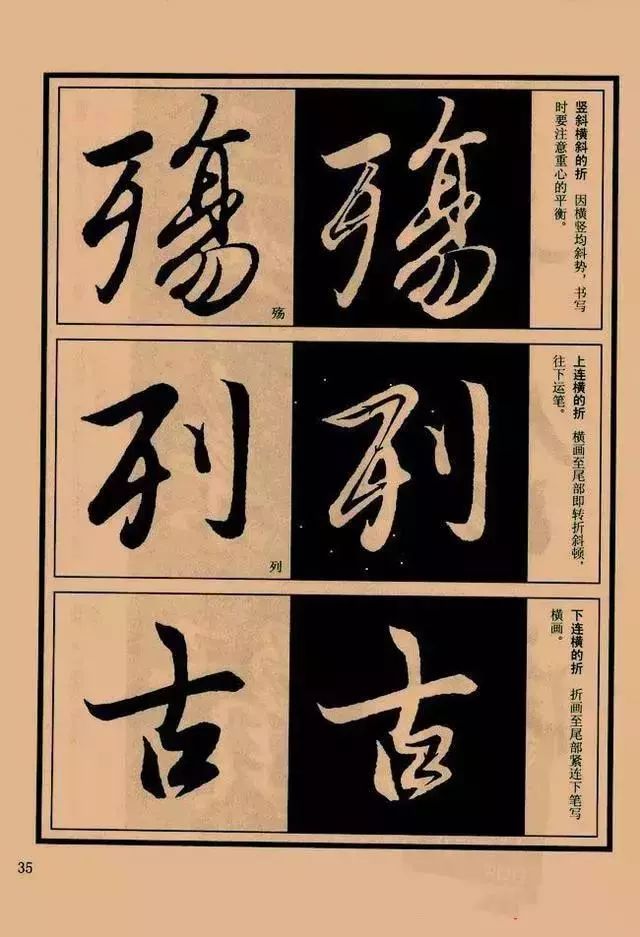 竖斜横斜的折 因横竖均斜势，书写
时要注意重心的平衡。
殇 殇
殇
上连横的折 横画至尾部即转折斜顿，
往下运笔。
列 列
列
下连横的折 折画至尾部紧连下笔写
横画。
古 古
35